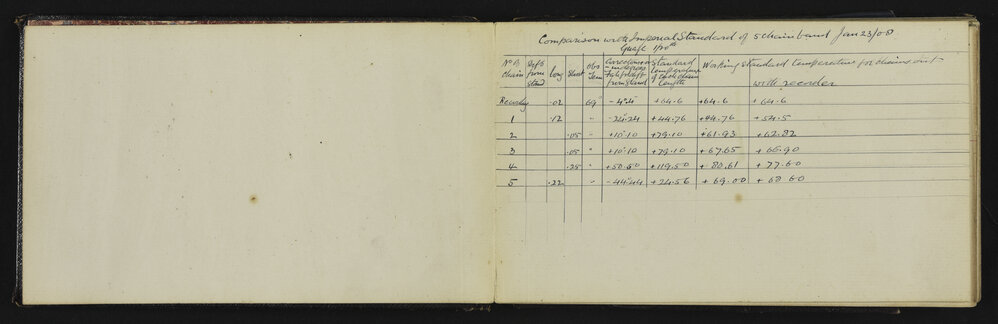 Comparison with Imperial Standard of 5 chain band Jan 23/08
No of chain Diffs from stand Long Short Obs Tem Corrections in degrees Fah for diff from Stand Standard temperature of each chain length Working Standard temperature for chains out with recorder
Recorder .02 69° -4.4 +64.6 +64.6 +64.6
1 .12 " -24.24 +44.76 +44.76 +54.5
2 .05 " +10.10 +79.10 +61.93 +62.82
3 .05 " +10.10 +79.10 +67.65 +66.90
4 .25 " +50.50 +119.50 +80.61 +77.60
5 .22 " -44.44 +24.56 +69.00 +68.60